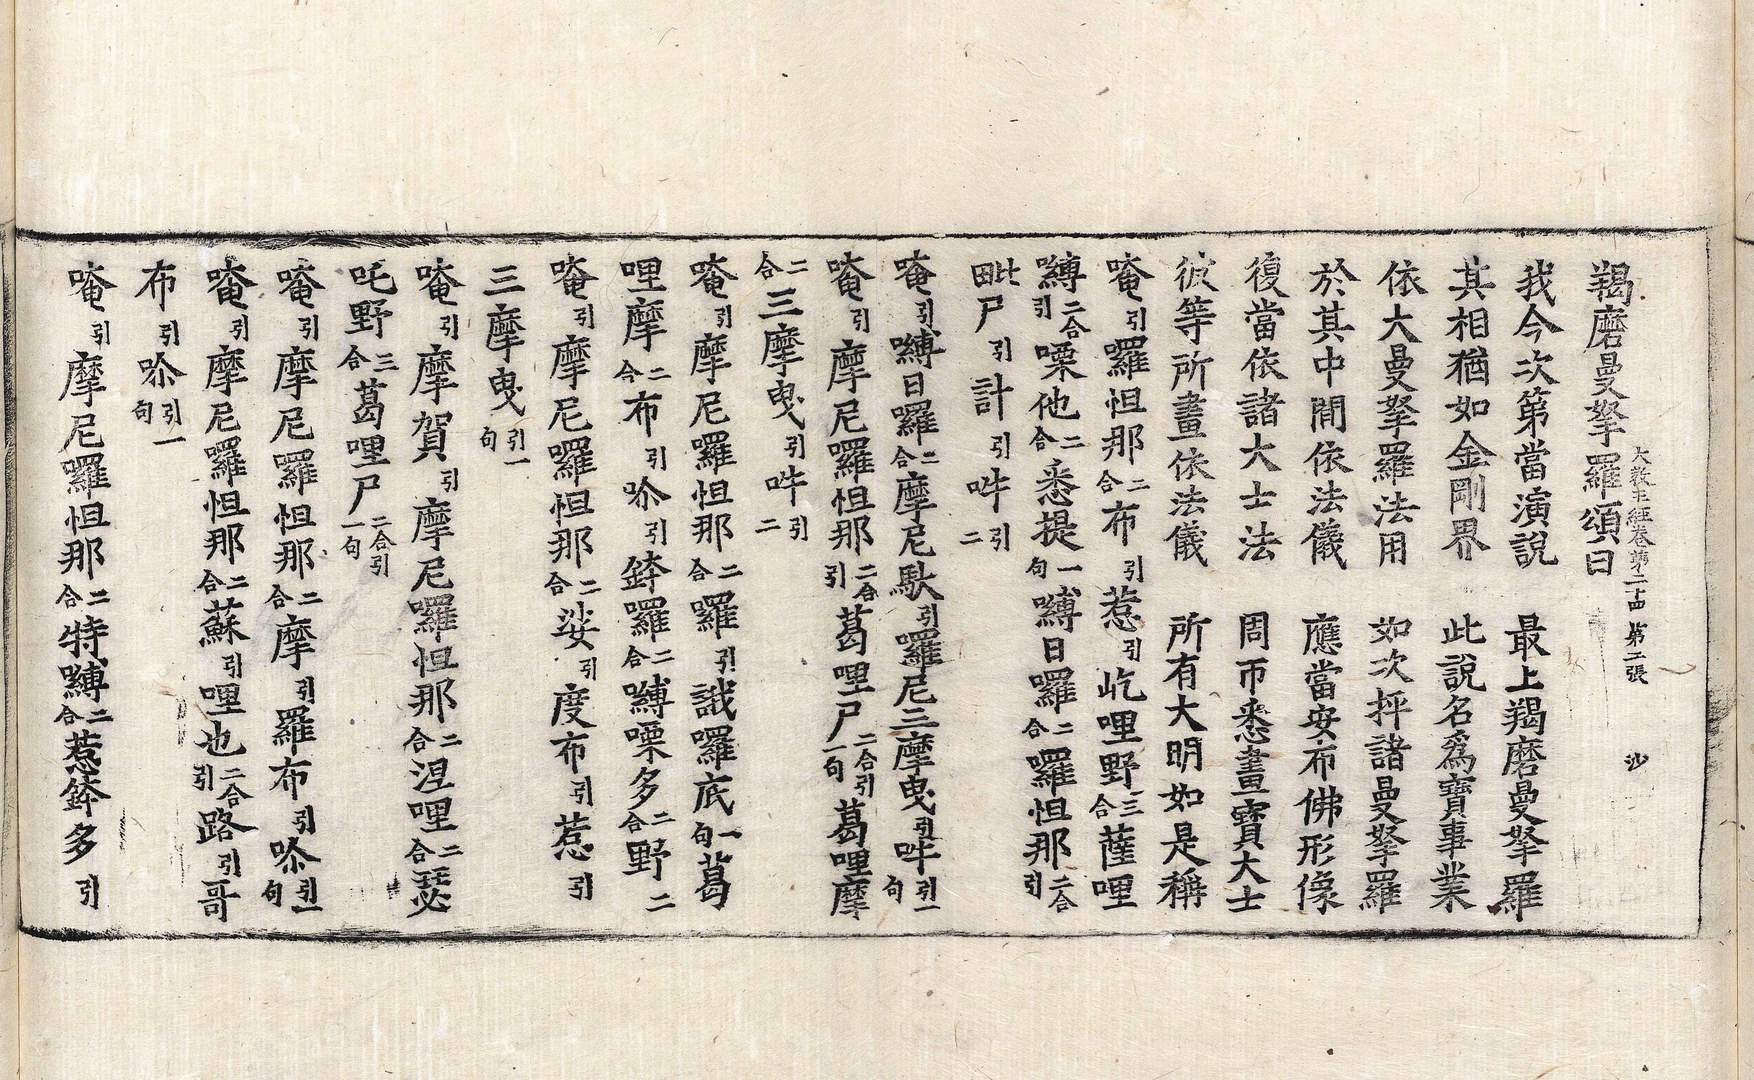 羯磨曼拏羅頌曰
大教王經卷第二十四 第二張 沙
我今次第當演說 最上羯磨曼拏羅
其相猶如金剛界 此說名爲寶事業
依大曼拏羅法用 如次抨諸曼拏羅
於其中間依法儀 應當安布佛形像
復當依諸大士法 周帀悉畫寶大士
彼等所畫依法儀 所有大明如是稱
唵引羅怛那二合布引惹引屹哩野三合薩哩
嚩二合引㗚他二合悉提一句嚩日囉二合囉怛那二合引
毗尸引計引吽引二
唵引嚩日囉二合摩尼馱引囉尼三摩曳引吽引一句
唵引摩尼囉怛那二合引葛哩尸二合引一句葛哩摩
二合三摩曳引吽引二
唵引摩尼囉怛那二合囉引誐囉底一句葛
哩摩二合布引𠸪引鉾囉二合嚩㗚多二合野二
唵引摩尼囉怛那二合娑引度布引惹引
三摩曳引一句
唵引摩賀引摩尼囉怛那二合涅哩二合瑟
吒野三合葛哩尸二合引一句
唵引摩尼囉怛那二合摩引羅布引𠸪引一句
唵引摩尼囉怛那二合蘇引哩也二合引路引哥
布引𠸪引一句
唵引摩尼囉怛那二合特嚩二合惹鉾多引